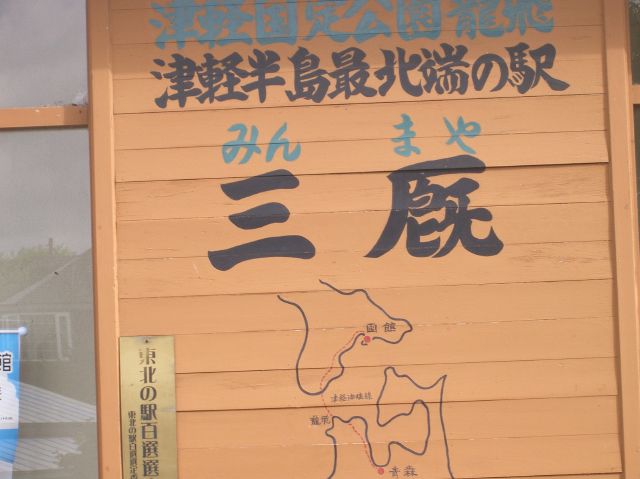 津軽国定公園龍飛
津軽半島最北端の駅
みんまや
三厩
函館
津軽海峡線
龍飛
青森
東北の駅百選選
東北の駅百選選定委
館